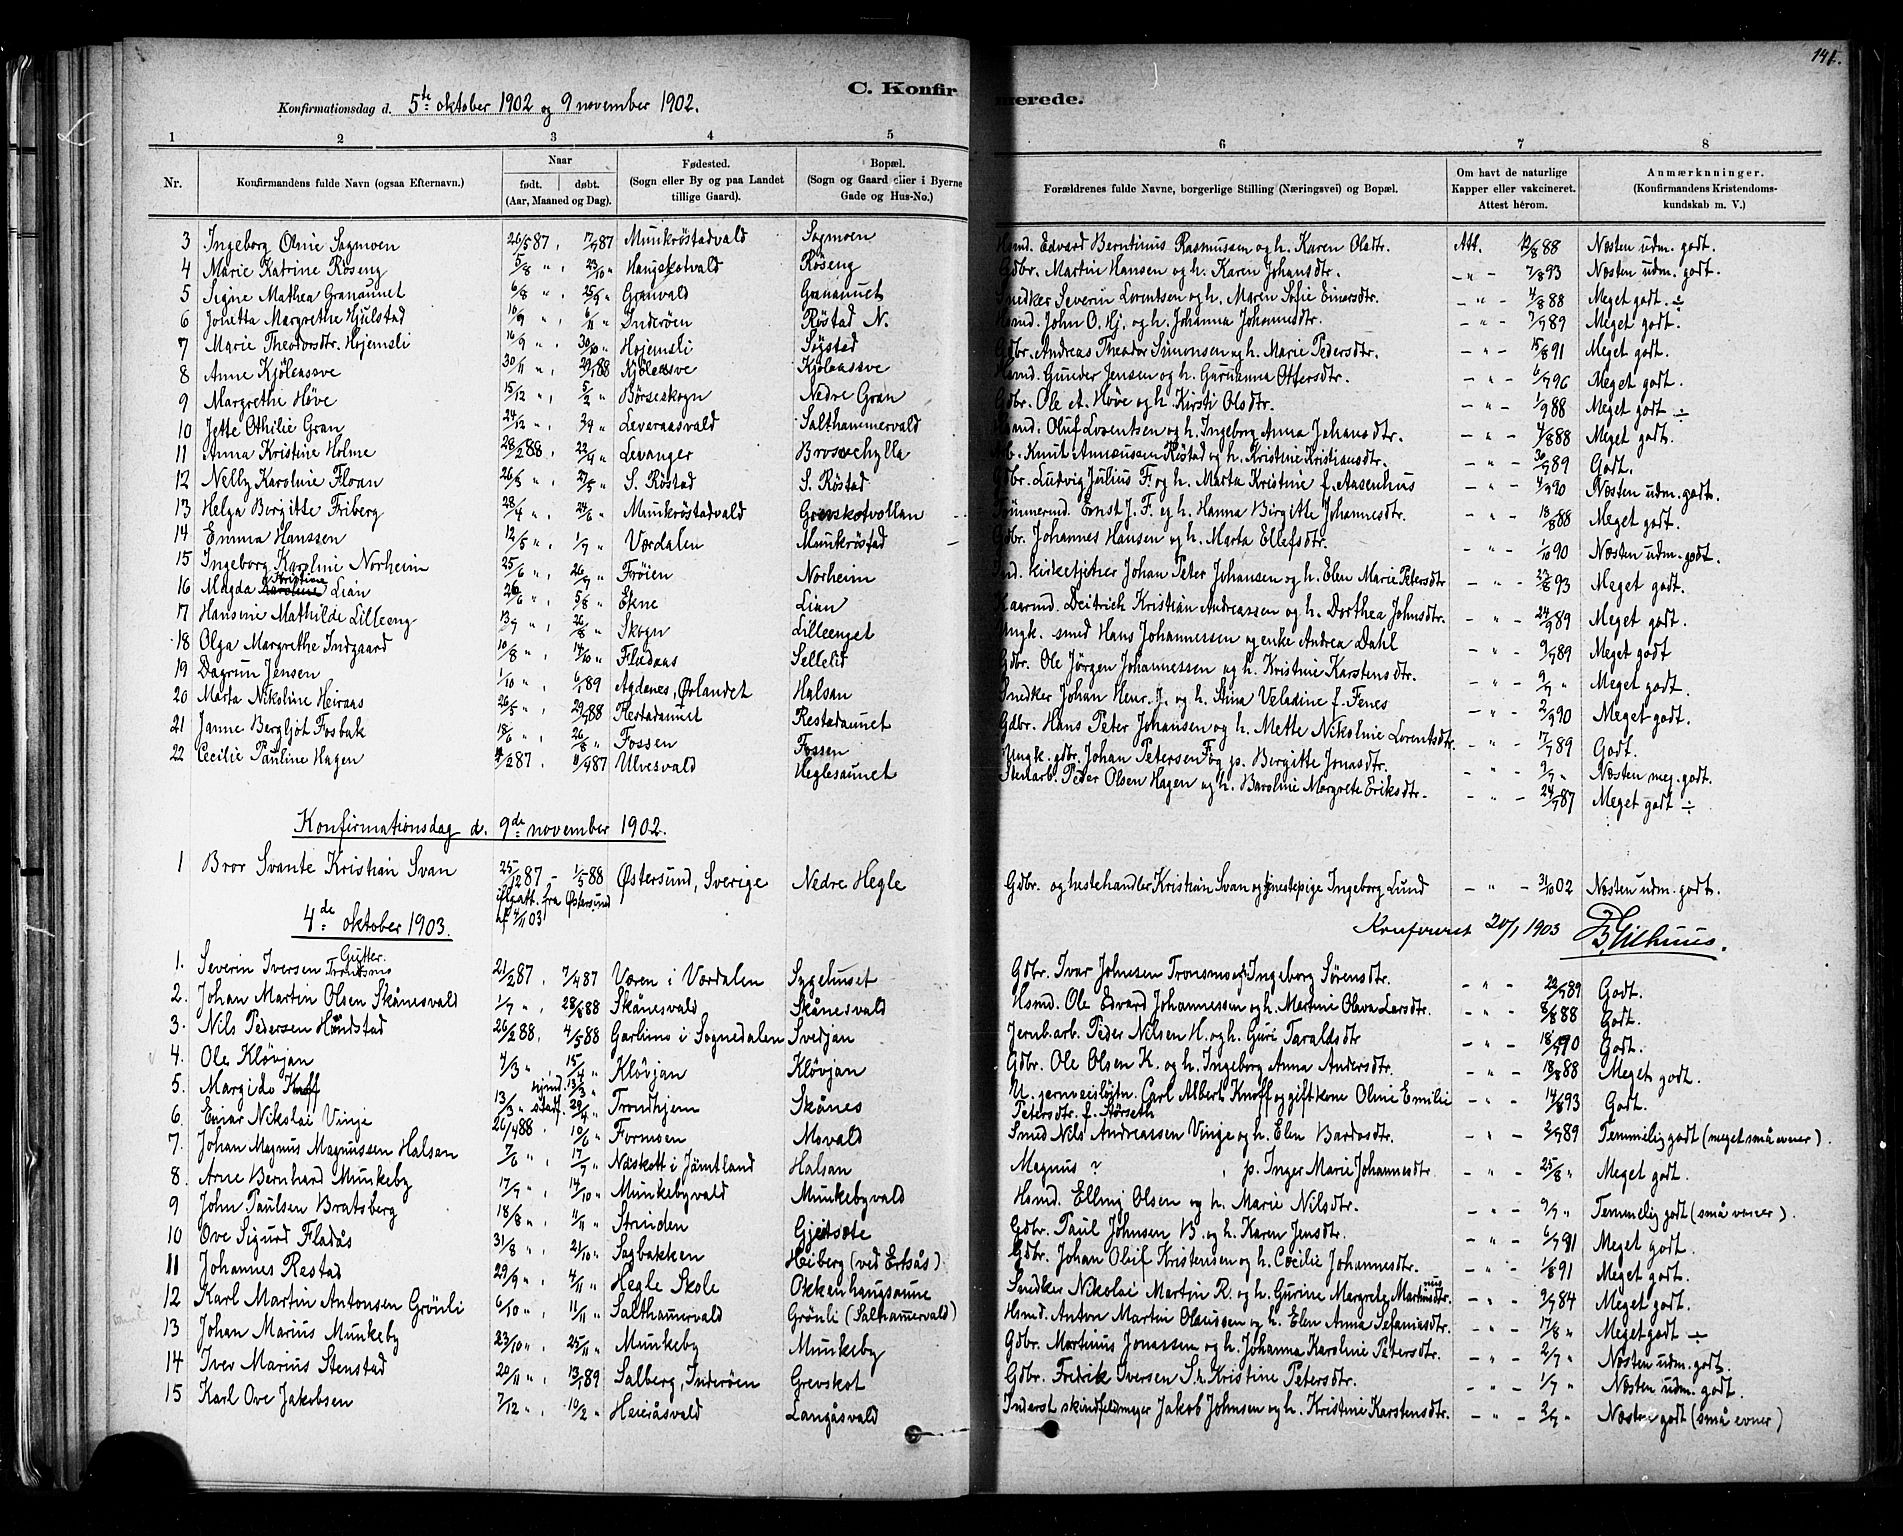 141.
C. Konfirmerede.
Konfirmationsdag d. 5te oktober 1902 og 9 november 1902.
1 2 3 4 5 6 7 8
Nr. Konfirmandens fulde Navn (ogsaa Efternavn). Naar født. døbt. (Aar, Maaned og Dag). Fødested. (Sogn eller By og paa Landet tillige Gaard). Bopæl. (Sogn og Gaard eller i Byerne Gade og Hus-No.) Forældrenes fulde Navne, borgerlige Stilling (Næringsvei) og Bopæl. Om havt de naturlige Kapper eller vakcineret. Attest herom. Anmærkninger. (Konfirmandens Kristendomskundskab m. V.)
3 Ingeborg Oline Sagmoen 26/5 87 17/7 87 Munkröstadvald Sagmoen Hsmd. Edvard Berntinus Rasmussen og h. Karen Olsdtr. Att. 12/8 88 Næsten udm. godt.
4 Marie Katrine Röseng 5/8 " 23/10 " Haugskotvald Röseng Gdbr. Martin Hansen og h. Karen Johansdtr. 7/8 93 Næsten udm. godt.
5 Signe Mathea Granaunet 6/8 " 25/9 " Granvald Granaunet Snedker Severin Lorentsen og h. Maren Sofie Einersdtr. 4/8 88 Meget godt. ÷
6 Jonetta Margrethe Hjulstad 10/9 " 6/11 " Inderöen Röstad N. Hsmd. John O. Hj. og h. Johanna Johannesdtr. 2/9 89 Meget godt.
7 Marie Theodorsdtr. Hojemsli 16/9 " 30/10 " Hojemsli Söystad Gdbr. Andreas Theodor Simonsen og h. Marie Pedersdtr. 15/8 91 Meget godt.
8 Anne Kjölaasve 30/11 " 29/1 88 Kjölaasve Kjölaasve Hsmd. Gunder Jensen og h. Gurianna Ottersdtr. 6/7 96 Meget godt.
9 Margrethe Höve 15/12 " 5/2 " Börseskogn Nedre Gran Gdbr. Ole Höve og h. Kirsti Olsdtr. 1/9 88 Meget godt ÷
10 Jette Othilie Gran 24/12 " 3/4 " Levaraasvald Salthammervald Hsmd. Oluf Lorentsen og h. Ingeborg Anna Johansdtr. 4/8 88 Meget godt.
11 Anna Kristine Holme 28/2 88 22/4 " Levanger Brossehylla Arb. Knut Röstad og h. Kristine Kristiansdtr. 30/7 89 Godt.
12 Nelly Karoline Floan 26/3 " 27/5 " S. Röstad S. Röstad Gdbr. Ludvig Julius F. og h. Marta Kristine f. Aasenhus 4/7 90 Næsten udm. godt.
13 Helga Bergitte Friberg 28/4 " 24/6 " Munkröstadvald Grevskotvollan Tömmermd. Ernst J. F. og h. Hanna Birgitte Johannesdtr. 18/8 88 Meget godt.
14 Emma Hanssen 12/5 " 1/7 " Værdalen Munkröstad Gdbr. Johannes Hansen og h. Marta Ellefsdtr. 1/10 90 Næsten udm. godt.
15 Ingeborg Karoline Norheim 25/6 " 26/7 " Fröien Norheim Ind. kirketjener Johan Peter Johansen og h. Elen Marie Petersdtr. 22/8 93 Meget godt.
16 Magda Kristine Lian 26/6 " 5/8 " Ekne Lian Kaarmd. Deitrich Kristian Andreassen og h. Dorthea Johnsdtr. 24/9 89 Meget godt.
17 Hansine Mathilde Lilleeng 13/7 " 26/8 " Skogn Lilleenget Ungk. smed Hans Johannessen og enke Andrea Dahl 9/7 89 Meget godt
18 Olga Margrethe Indgaard 10/8 " 14/10 " Fladaas Sellelid Gdbr. Ole Jörgen Johannessen og h. Kristine Karstensdtr. 9/7 " Meget godt.
19 Dagrun Jensen 1/10 " 6/1 89 Agdenes, Ørlandet Halsan Snedker Johan Henr. J. og h. Stina Veladine f. Fenes 2/9 90 Meget godt.
20 Marta Nikoline Heiraas 26/5 " 29/7 88 Restadaunet Restadaunet Gdbr. Hans Peter Johansen og h. Mette Nikoline Lorentsdtr. 17/7 89 Godt.
21 Janne Bergljot Fosbak 18/6 " 26/8 " Fossen Fossen Ungk. gdbr. Johan Petersen F. og p. Bergitte Jonasdtr. 9/7 " Næsten meg. godt.
22 Cecilie Pauline Hagen 4/2 87 11/4 87 Ulvesvald Heglesaunet Stenarb. Peder Olsen Hagen og h. Baroline Margrete Eriksdtr. 24/7 87 Meget godt ÷
Konfirmationsdag d. 9de november 1902.
1 Bror Svante Kristian Svan 25/12 87 1/5 88 Østersund, Sverige Nedre Hegle Gdbr. og hestehandler Kristian Svan og tjenestepige Ingeborg Lund 31/10 02 Næsten udm. godt.
fra Østersund af 4/11 03
Konfereret 20/1 1903
4de oktober 1903.
Gutter.
1. Severin Iversen Tronsmo 21/2 87 7/4 87 Væren i Værdalen Sygehuset Gdbr. Ivar Johnsen Tronsmo og Ingeborg Sörensdtr. 22/7 89 Godt.
2. Johan Martin Olsen Skånesvald 1/7 " 28/8 88 Skånesvald Skånesvald Hsmd. Ole Edvard Johannessen og h. Martine Olava Larsdtr. 8/8 88 Godt.
3. Nils Pedersen Haindstad 26/2 88. 4/5 88 Garlims i Sognedalen Svedjan Jernb.arb. Peder Nilsen H. og h. Guri Taraldsdtr 18/7 90 Godt.
4. Ole Klövjan 4/3 " 15/4 " Klövjan Klövjan Gdbr. Ole Olsen K. og h. Ingeborg Anna Andersdtr. 18/8 88 Meget godt.
5. Margido Knoff 13/3 " hjmd. 13/3 stadf. 29/4 " Trondhjem Skånes U. jernveisløitn. Carl Albert Knoff og gift kone Oline Emilie Petersdtr. f. Störseth 14/8 93 Godt.
6. Einar Nikolai Vinje 26/4 88 10/6 " Formoen Movald Smed Nils Andreassen Vinje og h. Elen Bardosdtr. 2/9 89 Temmelig godt (meget små evner).
7. Johan Magnus Magnussen Halsan 7/6 " 17/7 " Næskott i Jämtland Halsan Magnus ? p. Inger Marie Johannesdtr. 25/8 " Meget godt.
8. Arne Bernhard Munkeby 17/7 " 14/10 " Munkebyvald Munkebyvald Hsmd. Elling Olsen og h. Marie Nilsdtr. 9/7 " Temmelig godt (små evner).
9 John Paulsen Bratsberg 18/8 " 11/11 " Strinden Gjeitsete Gdbr. Paul Johnsen B. og h. Karen Jensdtr. 6/7 91 Meget godt.
10 Ove Sigurd Fladås 31/8 " 21/10 " Sagbakken Heiberg (ved Ertsås) Gdbr. Johan Oluf Kristensen og h. Cecilie Johannesdtr. 1/8 91 Meget godt.
11 Johannes Restad 29/9 " 4/11 " Hegle Skole Okkenhaugsaune Snedker Nikolai Martin R. og h. Gurine Margrete Martinusdtr. 9/7 84 Meget godt.
12 Karl Martin Antonsen Grönli 6/10 " 11/11 " Salthamervald Grönli (Salthamervald) Hsmd. Anton Martin Olaussen og h. Elen Anna Sefaniasdtr. 17/8 " Meget godt ÷
13 Johan Marius Munkeby 23/10 " 25/11 " Munkeby Munkeby Gdbr. Martinus Jonassen og h. Johanna Karoline Petersdtr. 2/7 " Næsten udm. godt.
14 Iver Marius Stenstad 20/11 " 13/1 89 Salberg, Inderöen Grevskot Gdbr. Fredrik Iversen S. h. Kristine Petersdtr. 1/7 " Næsten udm. godt.
15 Karl Ove Jakobsen 7/12 " 10/2 " Heiråsvald Langåsvald Inderst skindfeldmager Jakob Johnsen og h. Kristine Karstensdtr. 2/7 " Næsten godt (små evner)